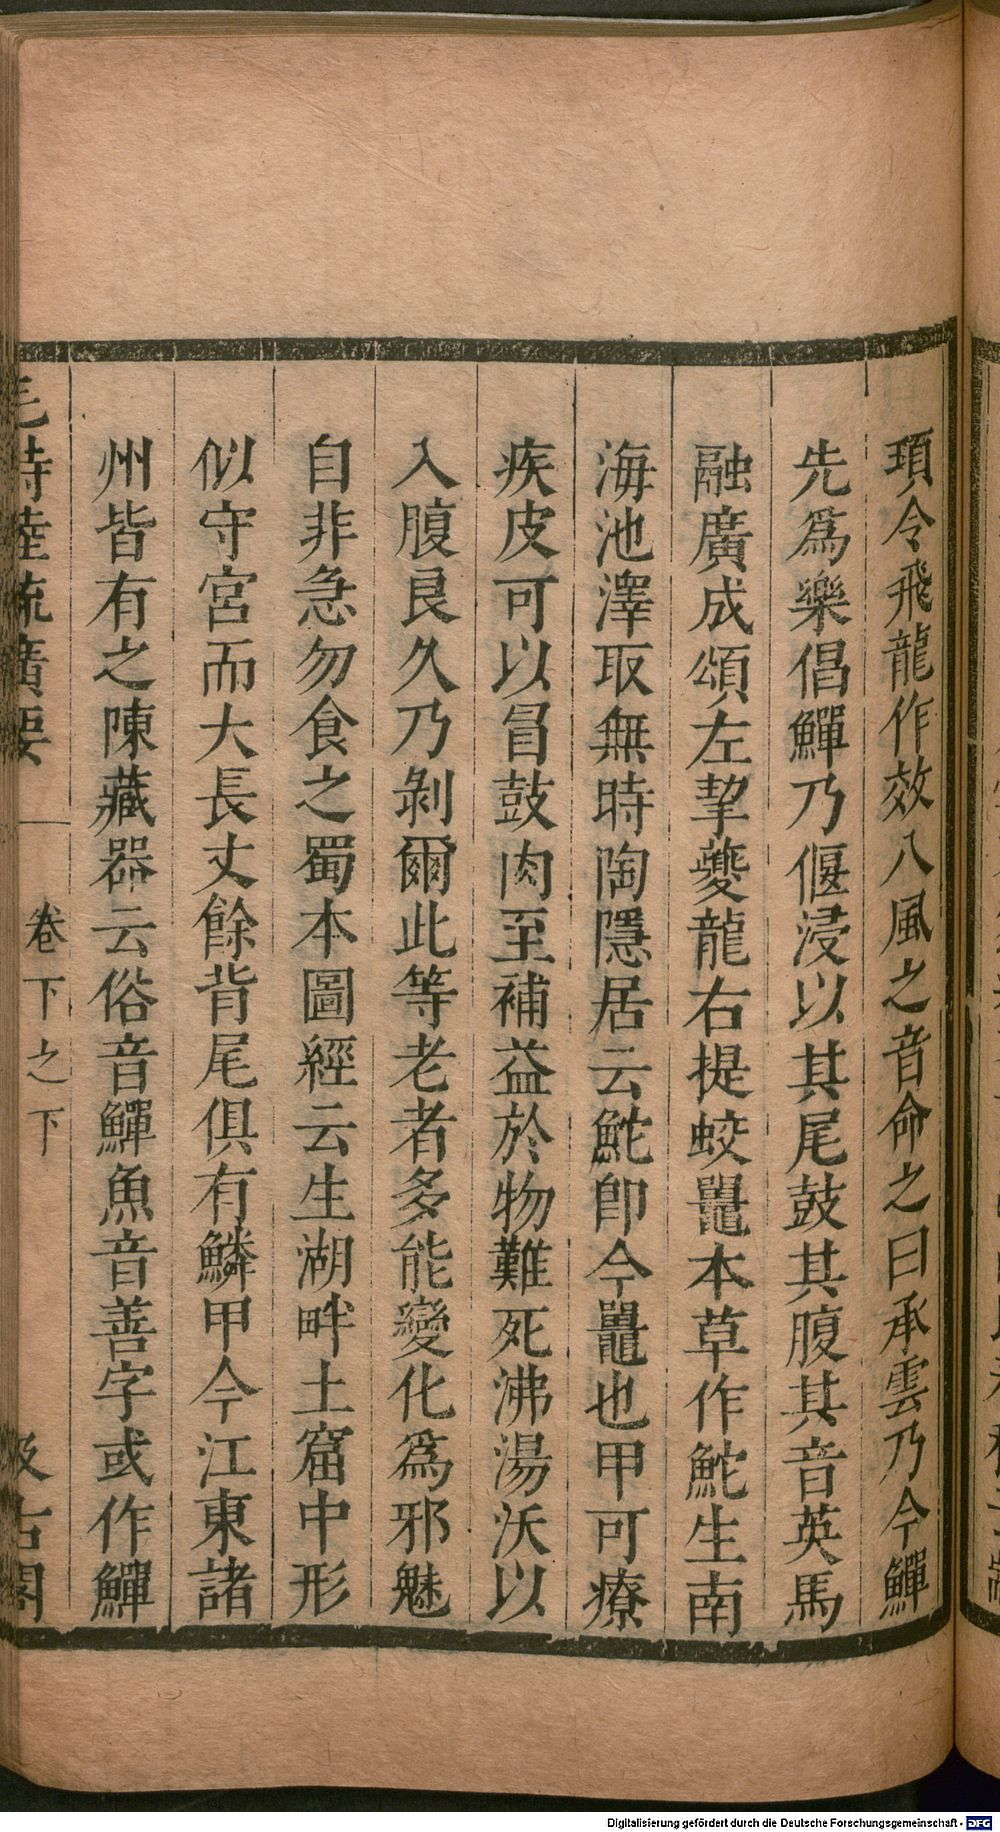 項令飛龍作效八風之音命之曰承雲乃令鱓
先爲樂倡鱓乃偃浸以其尾鼓其腹其音英馬
融廣成頌左挈夔龍右提蛟鼉本草作鮀生南
海池澤取無時陶隱居云鮀卽今鼉也甲可療
疾皮可以冒鼓肉至補益於物難死沸湯沃以
入腹良久乃剝爾此等老者多能變化爲邪魅
自非急勿食之蜀本圖經云生湖畔土窟中形
似守宮而大長丈餘背尾俱有鱗甲今江東諸
州皆有之陳藏器云俗音鱓魚音善字或作鱓
毛詩陸疏廣要 卷下之下 汲古閣
Digitalisierung gefördert durch die Deutsche Forschungsgemeinschaft - DFG